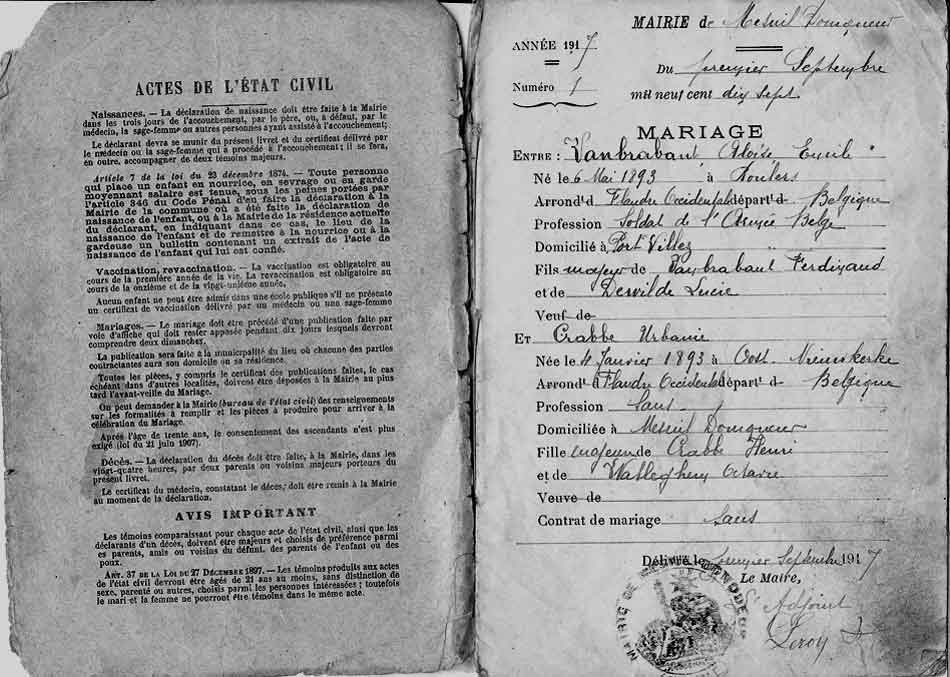 ACTES DE L'ÉTAT CIVIL
Naissances. — La déclaration de naissance doit être faite à la Mairie
dans les trois jours de l'accouchement, par le père, ou, à défaut, par le
médecin, la sage-femme ou autres personnes ayant assisté à l'accouchement;
Le déclarant devra se munir du présent livret et du certificat délivré par
le médecin ou la sage-femme qui a procédé à l'accouchement; il se fera,
en outre, accompagner de deux témoins majeurs.
Article 7 de la loi du 23 décembre 1874. — Toute personne
qui place un enfant en nourrice, en sevrage ou en garde
moyennant salaire est tenue, sous les peines portées par
l'article 346 du Code Pénal d'en faire la déclaration à la
Mairie de la commune où a été faite la déclaration de
naissance de l'enfant, ou à la Mairie de la résidence actuelle
du déclarant, en indiquant dans ce cas, le lieu de la
naissance de l'enfant et de remettre à la nourrice ou à la
gardeuse un bulletin contenant un extrait de l'acte de
naissance de l'enfant qui lui est confié.
Vaccination, revaccination. — La vaccination est obligatoire au
cours de la première année de la vie. La revaccination est obligatoire au
cours de la onzième et de la vingt-unième année.
Aucun enfant ne peut être admis dans une école publique s'il ne présente
un certificat de vaccination délivré par un médecin ou une sage-femme
Mariages. — Le mariage doit être précédé d'une publication faite par
voie d'affiche qui doit rester apposée pendant dix jours lesquels devront
comprendre deux dimanches.
La publication sera faite à la municipalité du lieu où chacune des parties
contractantes aura son domicile ou sa résidence.
Toutes les pièces, y compris le certificat des publications faites, le cas
échéant dans d'autres localités, doivent être déposées à la Mairie au plus
tard l'avant-veille du Mariage.
On peut demander à la Mairie (bureau de l'état civil) des renseignements
sur les formalités à remplir et les pièces à produire pour arriver à la
célébration du Mariage.
Après l'âge de trente ans, le consentement des ascendants n'est plus
exigé (loi du 21 juin 1907).
Décès. — La déclaration du décès doit être faite, à la Mairie, dans les
vingt-quatre heures, par deux parents ou voisins majeurs porteurs du
présent livret.
Le certificat du médecin, constatant le décès, doit être remis à la Mairie
au moment de la déclaration.
AVIS IMPORTANT
Les témoins comparaissant pour chaque acte de l'état civil, ainsi que les
déclarants d'un décès, doivent être majeurs et choisis de préférence parmi
es parents, amis ou voisins du défunt, des parents de l'enfant ou des
poux.
ART. 37 DE LA LOI DU 27 DÉCEMBRE 1897. — Les témoins produits aux actes
de l'état civil devront être âgés de 21 ans au moins, sans distinction de
sexe, parenté ou autres, choisis parmi les personnes intéressées; toutefois
le mari et la femme ne pourront être témoins dans le même acte.
MAIRIE de Mesnil Domqueur
ANNÉE 1917
Du premier Septembre
Numéro 1
mil neuf cent dix sept
MARIAGE
ENTRE : Vanbrabant Aloïse Emile
Né le 6 Mai 1893 à Roulers
Arrond't d Flandre Occidentale départ't d- Belgique
Profession Soldat de l'Armée Belge
Domicilié à Port Villez
Fils majeur de Vanbrabant Ferdinand
et de Dewilde Lucie
Veuf de
ET Crabbe Urbanie
Née le 4 Janvier 1893 à Oost-Nieuwkerke
Arrond't d Flandre Occidentale départ't d- Belgique
Profession Sans
Domiciliée à Mesnil Domqueur
Fille majeure de Crabbe Henri
et de Walleghem Octavie
Veuve de
Contrat de mariage sans
Délivré le premier Septembre 1917
Le Maire,
L'Adjoint
Leroy
MAIRIE DE